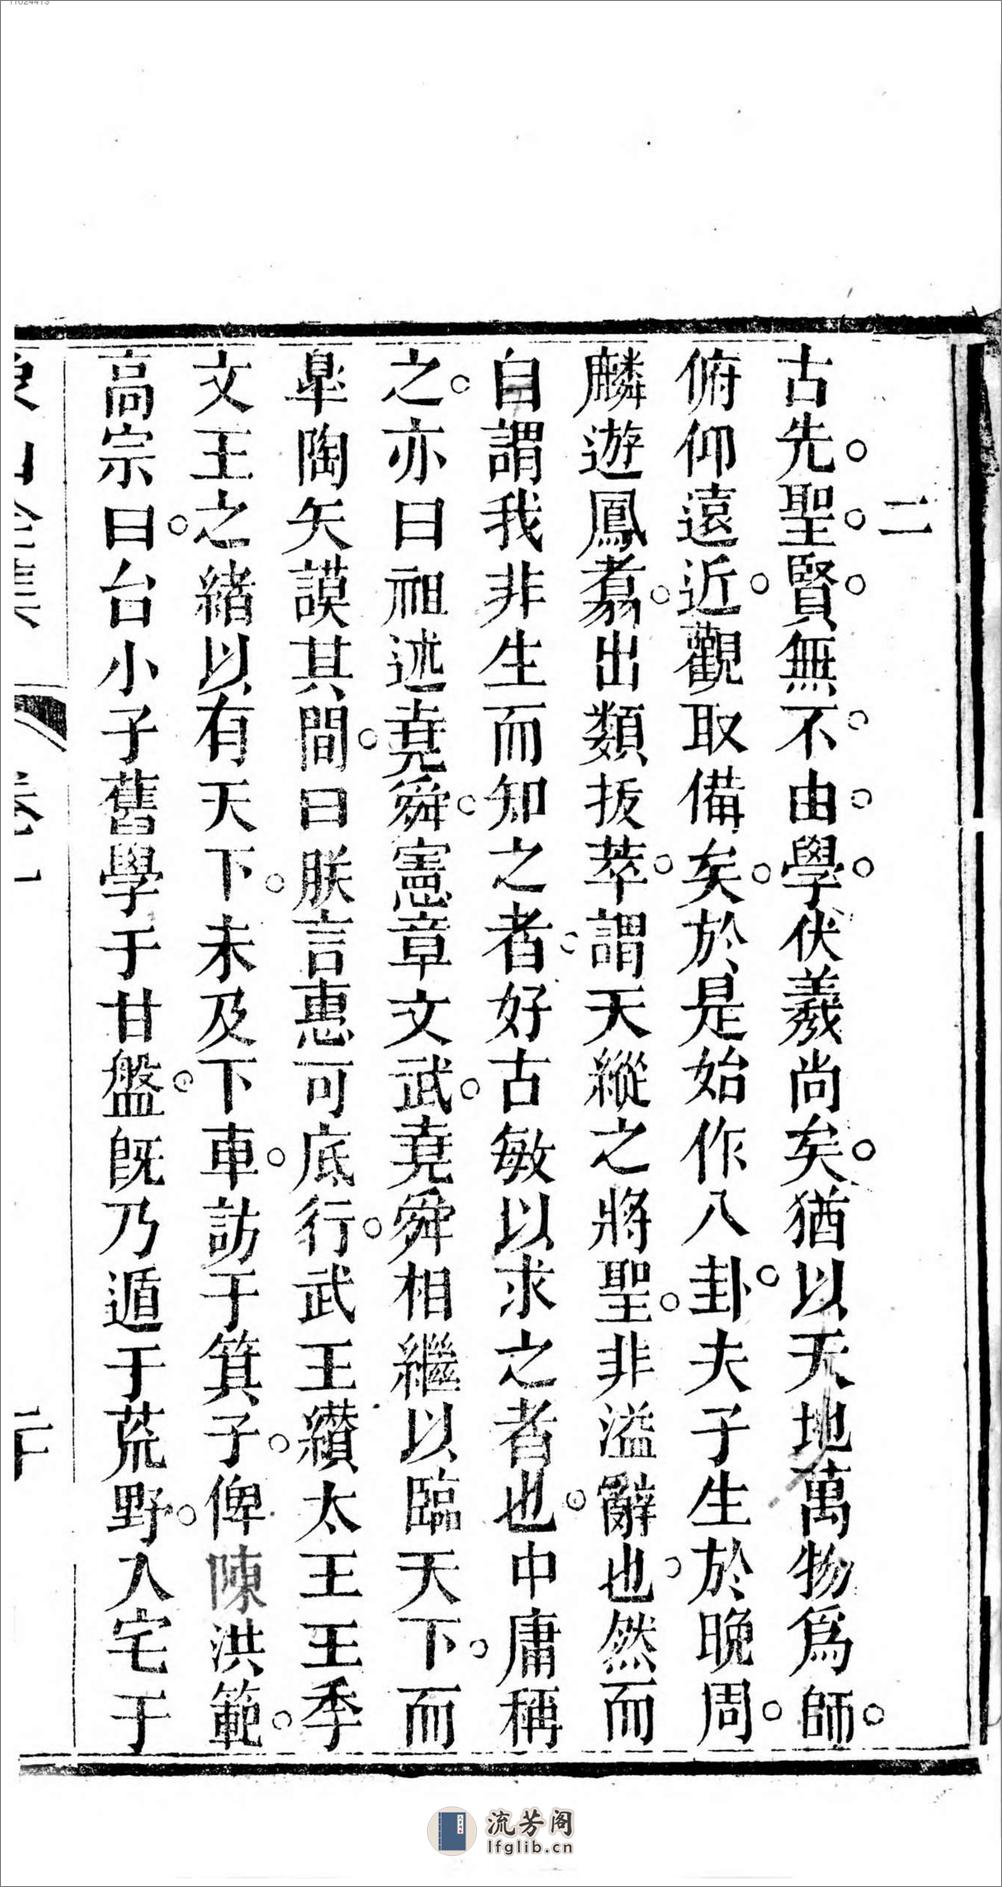 11024413
二
古先聖賢無不由學伏羲尚矣猶以天地萬物爲師
俯仰遠近觀取備矣於是始作八卦夫子生於晚周
麟遊鳳翥出類拔萃謂天縱之將聖非溢辭也然而
自謂我非生而知之者好古敏以求之者也中庸稱
之亦曰祖述堯舜憲章文武堯舜相繼以臨天下而
皐陶矢謨其間曰朕言惠可底行武王纘太王王季
文王之緒以有天下未及下車訪于箕子俾陳洪範
高宗曰台小子舊學于甘盤旣乃遁于荒野入宅于
象山全集 卷一 二十
流芳阁
lfglib.cn